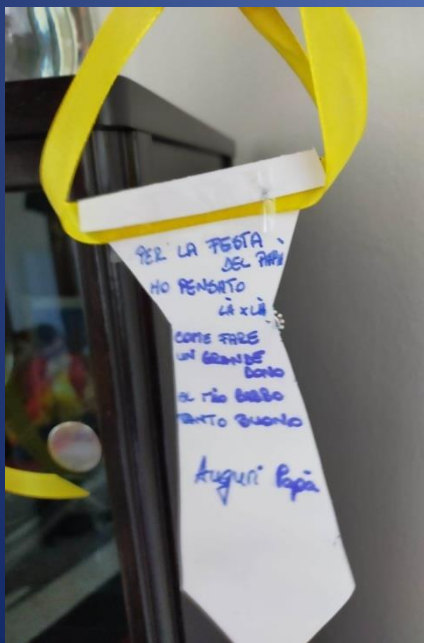 PER LA FESTA
DEL PAPÀ
HO PENSATO
LÀ x LÀ
COME FARE
UN GRANDE
DONO
AL MIO BABBO
TANTO BUONO
Auguri Papà